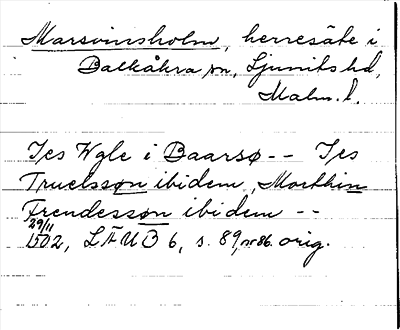 Marsvinsholm, herresäte i
Balkåkra sn, Ljunits hd,
Malm. l.
Jes Wgle i Baarsø -- Jes
Truelssøn ibidem, Morthin
Frendessøn ibidem --
29/11
1502, LÄUB 6, s. 89, nr 86. orig.